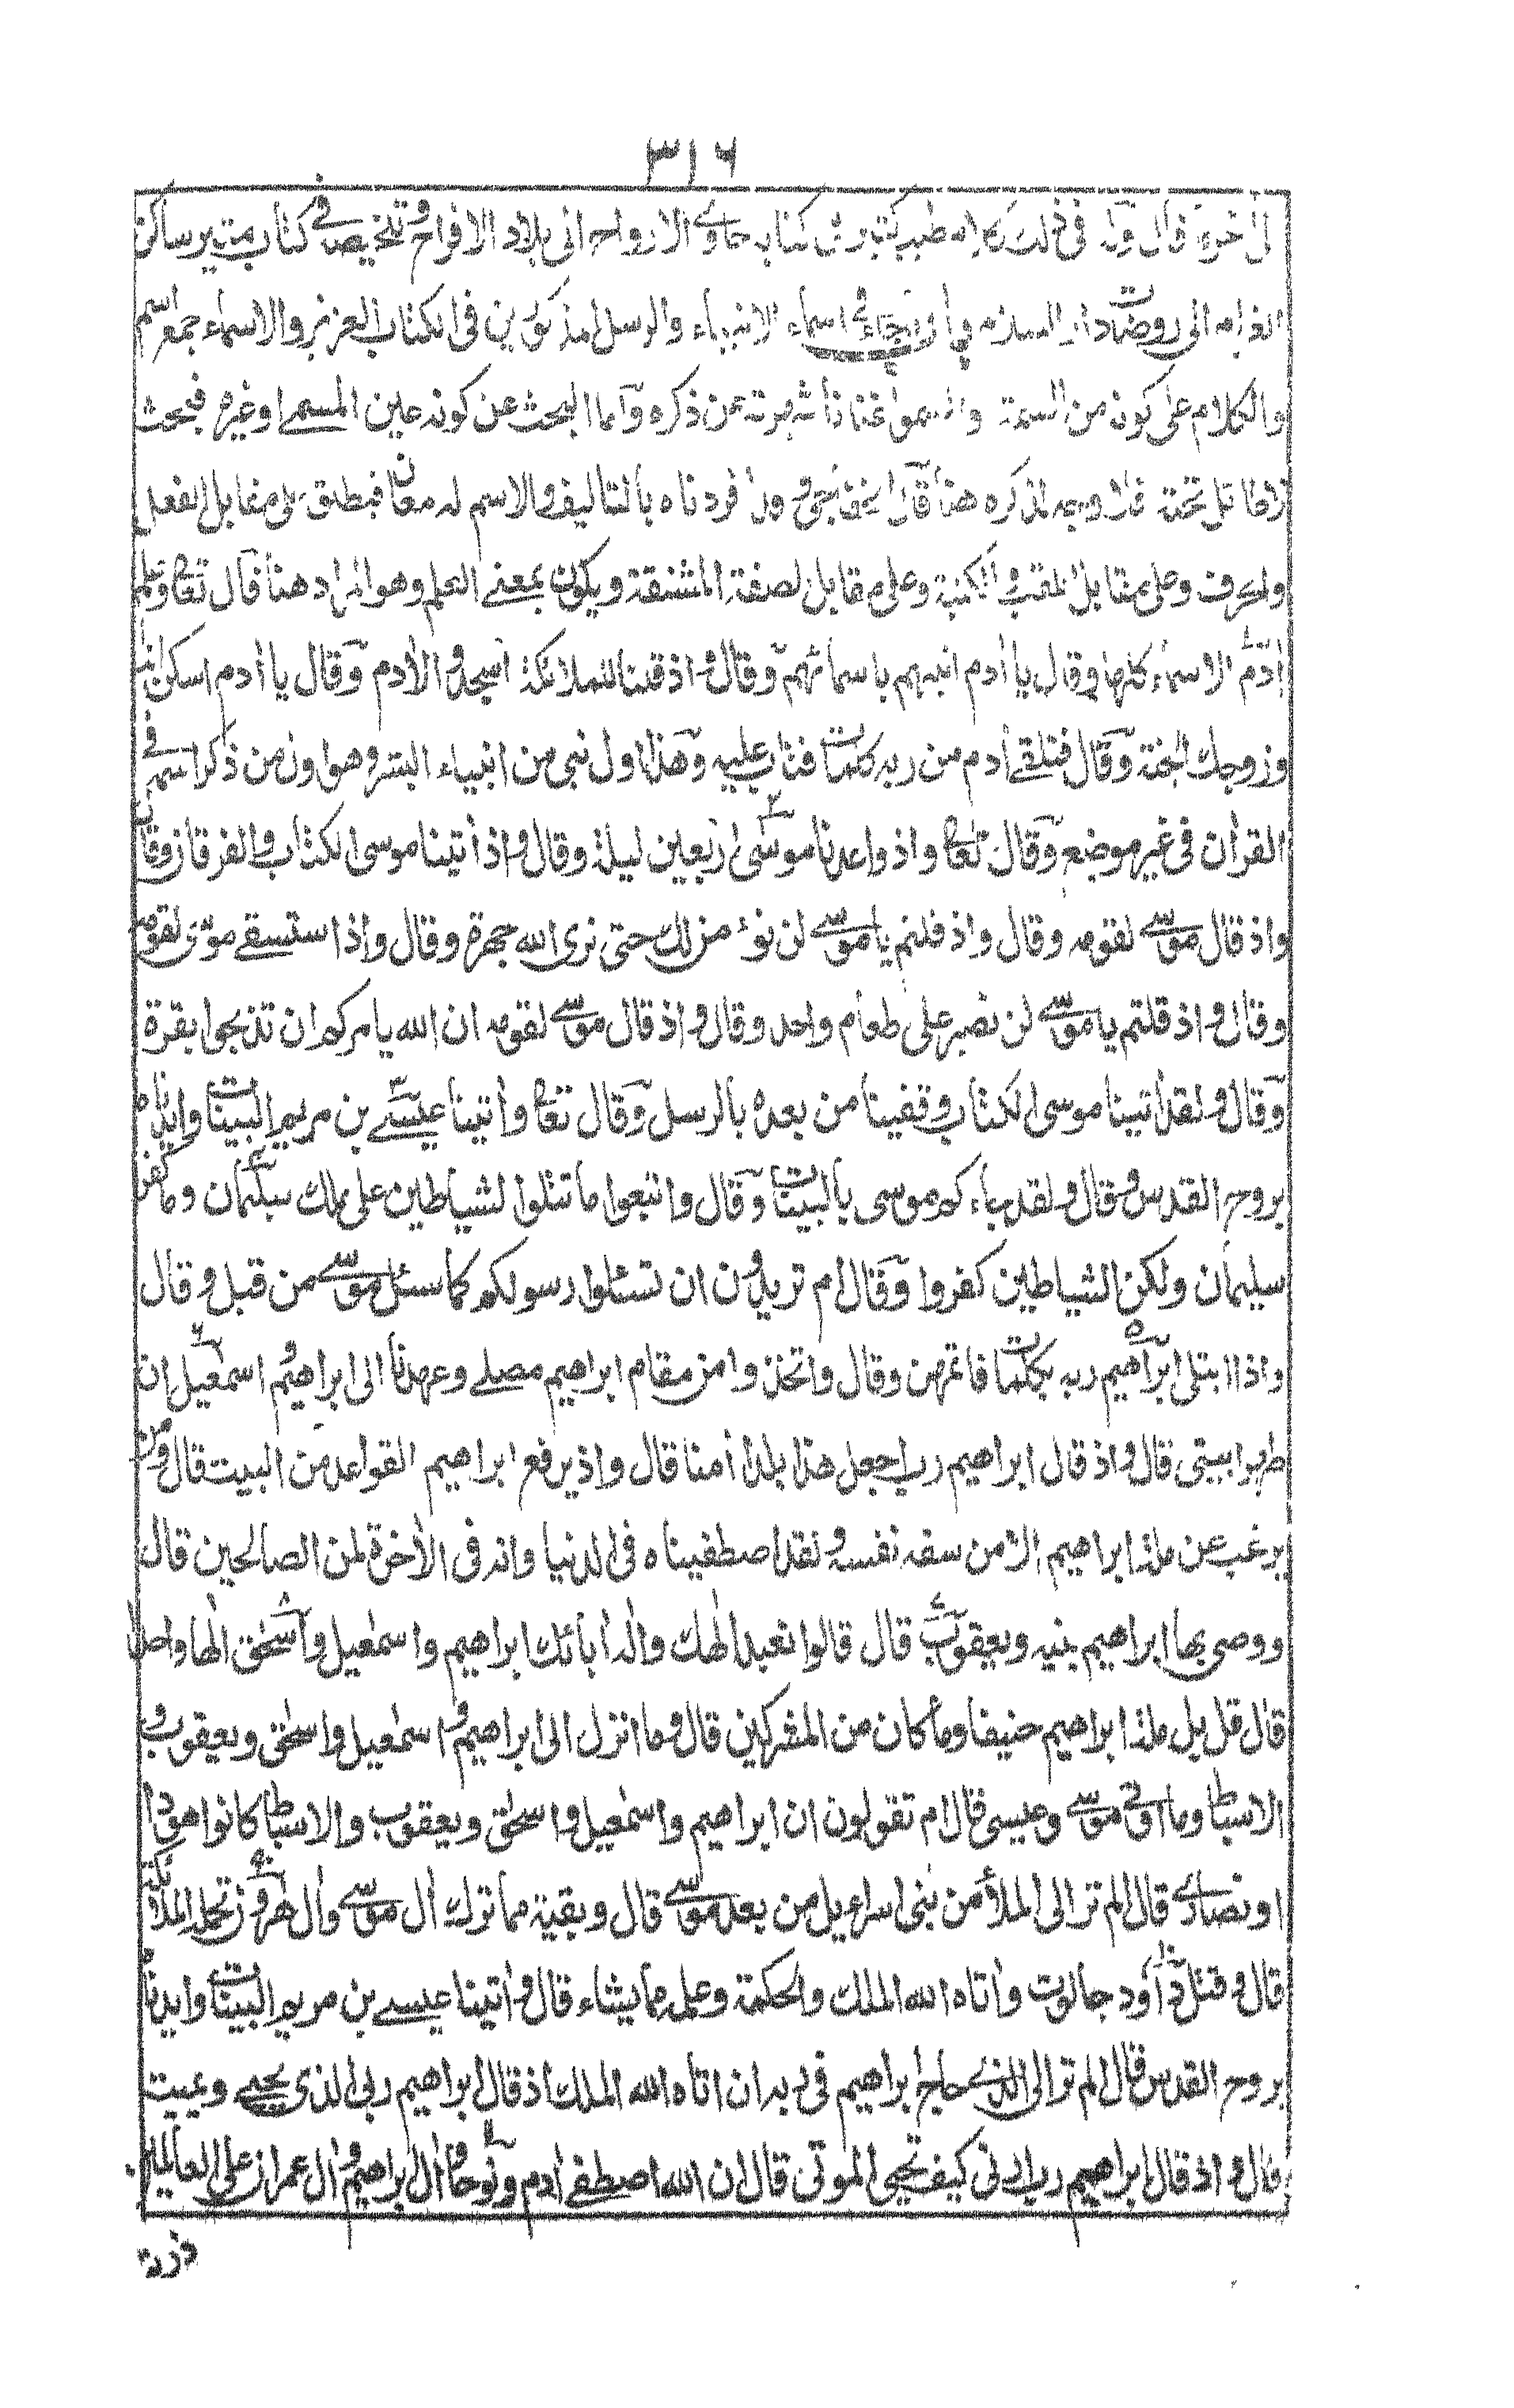 ٣١٦
كتاب حاوي الارواح الى بلاد الافراح وتلخيصه في كتاب مثير ساكن
الغرام الى روضات دار السلام في اسماء الانبياء والرسل المذكورين في الكتاب العزيز والاسماء جمع اسم
والكلام على كونه من السمة عن ذكره وآما البحث عن كونه عين المسمى او غيره فبحث
لا طائل تحته فلا وجه لذكره هنا افردناه بالتاليف والاسم له معان فيطلق على مقابل الفعل
والحرف وعلى مقابل اللقب والكنية وعلى مقابل الصفة المشتقة ويكون بمعنى العلم وهو المراد هنا قال تعا وعلم
اٰدم الاسماء كلها وقال يا اٰدم انبئهم باسمائهم وقال واذ قلنا للملائكة اسجدوا لاٰدم وقال يا اٰدم اسكن انت
وزوجك الجنة وقال فتلقى اٰدم من ربه كلمات فتاب عليه وهذا اول نبي من انبياء البشر وهو اول من ذكر اسمه في
القراٰن في غير موضع وقال تعا واذ واعدنا موسى اربعين ليلة وقال واذ اٰتينا موسى الكتاب والفرقان وقال
واذ قال موسى لقومه وقال واذ قلتم يا موسى لن نؤمن لك حتى نرى الله جهرة وقال واذ استسقى موسى لقومه
وقال واذ قلتم يا موسى لن نصبر على طعام واحد وقال واذ قال موسى لقومه ان الله يامركم ان تذبحوا بقرة
وقال ولقد اٰتينا موسى الكتاب وقفينا من بعده بالرسل وقال تعا واٰتينا عيسى بن مريم البينات وايدناه
بروح القدس وقال ولقد جاءكم موسى بالبينات وقال واتبعوا ما تتلوا لشياطين على ملك سليمان وما كفر
سليمان ولكن الشياطين كفروا وقال ام تريدون ان تسئلوا رسولكم كما سئل موسى من قبل وقال
واذ ابتلى ابراهيم ربه بكلمات فاتمهن وقال واتخذوا من مقام ابراهيم مصلى وعهدنا الى ابراهيم واسمعيل ان
طهرا بيتي قال واذ قال ابراهيم رب اجعل هذا بلدا اٰمنا قال واذ يرفع ابراهيم القواعد من البيت قال ومن
يرغب عن ملة ابراهيم الا من سفه نفسه ولقد اصطفيناه في الدنيا وانه في الاٰخرة لمن الصالحين قال
ووصى بها ابراهيم بنيه ويعقوب قال قالوا نعبد الٰهك واله اٰبائك ابراهيم واسمٰعيل واسحٰق الٰها واحدا
قال قل بل ملة ابراهيم حنيفا وما كان من المشركين قال وما انزل الى ابراهيم واسمٰعيل واسحٰق ويعقوب و
الاسباط وما اوتي موسى وعيسى قال ام تقولون ان ابراهيم واسمٰعيل واسحٰق ويعقوب والاسباط كانوا هودا
او نصارى قال الم تر الى الملأ من بني اسراءيل من بعد موسى قال وبقية مما ترك اٰل موسى واٰل هٰرون تحمله الملائكة
قال وقتل داود جالوت واٰتاه الله الملك والحكمة وعلمه مما يشاء قال واٰتينا عيسى بن مريم البينات وايدناه
بروح القدس قال الم تر الى الذي حاج ابراهيم في ربه ان اتاه الله الملك اذ قال ابراهيم ربي الذي يحيي ويميت
قال واذ قال ابراهيم رب ارني كيف تحيي الموتى قال ان الله اصطفى اٰدم ونوحا واٰل ابراهيم واٰل عمران على العالمين
ذرية